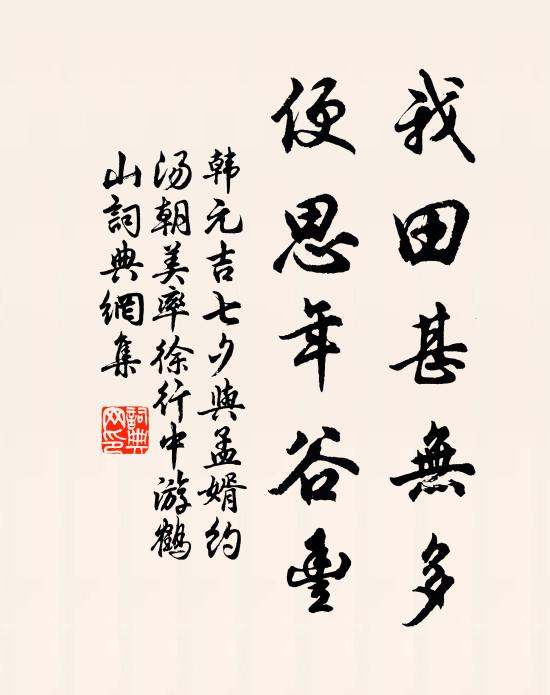 我田甚無多
便思年谷豐
韩元吉七夕與孟婿约
汤朝美率徐行中游鶴
山詞典網集
詞典
网印